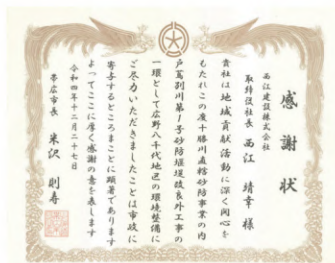 感謝状
西江建設株式会社
取締役社長 西江 靖幸 様
貴社は地域貢献活動に深く関心を
もたれこの度十勝川直轄砂防事業の内
戸蔦別川第1号砂防堰堤改良外工事の
一環として広野八千代地区の環境整備に
ご尽力いただきましたことは市政に
寄与するところまことに顕著であります
よってここに厚く感謝の意を表します
令和四年十二月二十七日
帯広市長 米沢 則寿